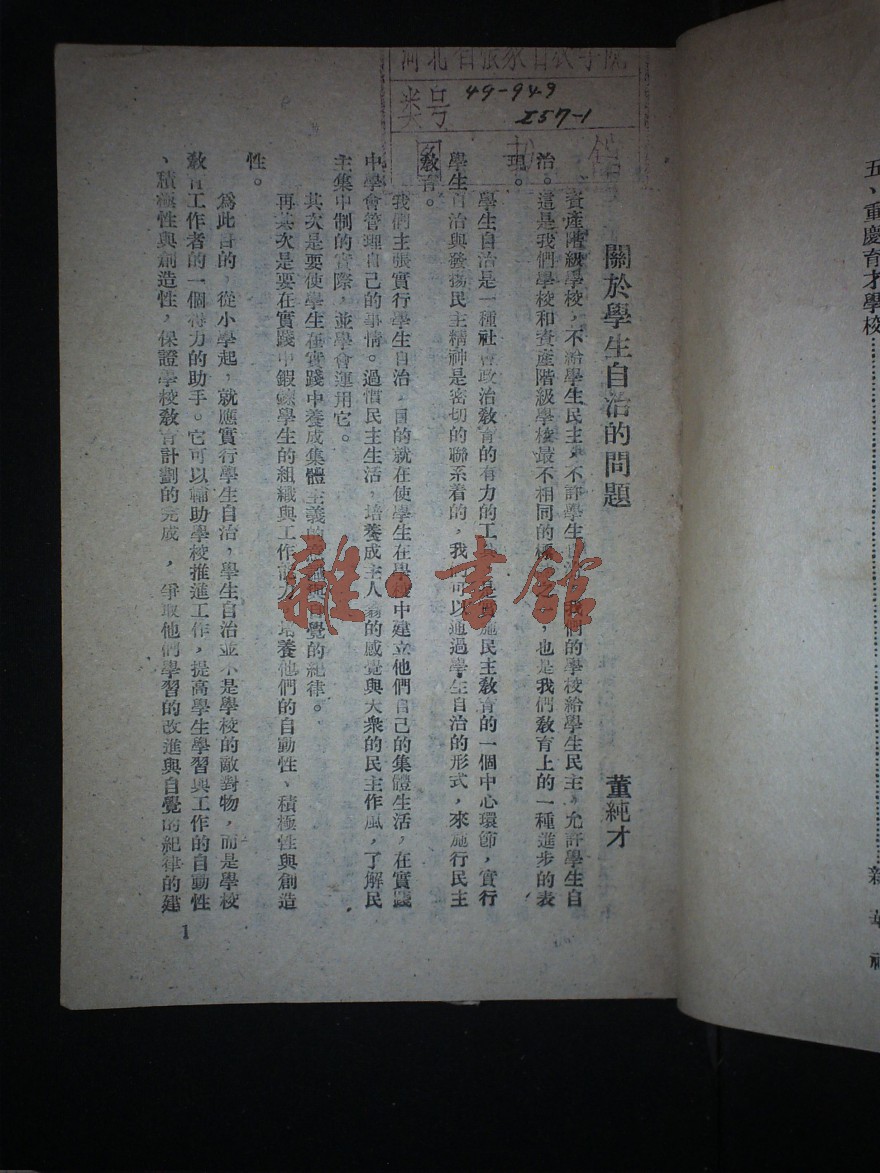 五、重慶育才學校
新華社
類号 49-949
I57-1
關於學生自治的問題
董純才
資產階級學校,不給學生民主,不許學生自治。我們的學校給學生民主,允許學生自
治。這是我們學校和資產階級學校最不相同的,也是我們敎育上的一種進步的表
現。
學生自治是一種社會政治敎育的有力的工具,是實施民主敎育的一個中心環節,實行
學生自治與發揚民主精神是密切的聯系着的,我們可以通過學生自治的形式,來施行民主
敎育。
我們主張實行學生自治,目的就在使學生在學校中建立他們自己的集體生活,在實踐
中學會管理自己的事情。過慣民主生活,培養成主人翁的感覺與大衆的民主作風,了解民
主集中制的實際,並學會運用它。
其次是要使學生在實踐中養成集體主義的與自覺的紀律。
再其次是要在實踐中鍛鍊學生的組織與工作能力,培養他們的自動性、積極性與創造
性。
爲此目的,從小學起,就應實行學生自治,學生自治並不是學校的敵對物,而是學校
敎育工作者的一個得力的助手。它可以輔助學校推進工作,提高學生學習與工作的自動性
、積極性與創造性,保證學校敎育計劃的完成,爭取他們學習的改進與自覺的紀律的建
1
雜·書館